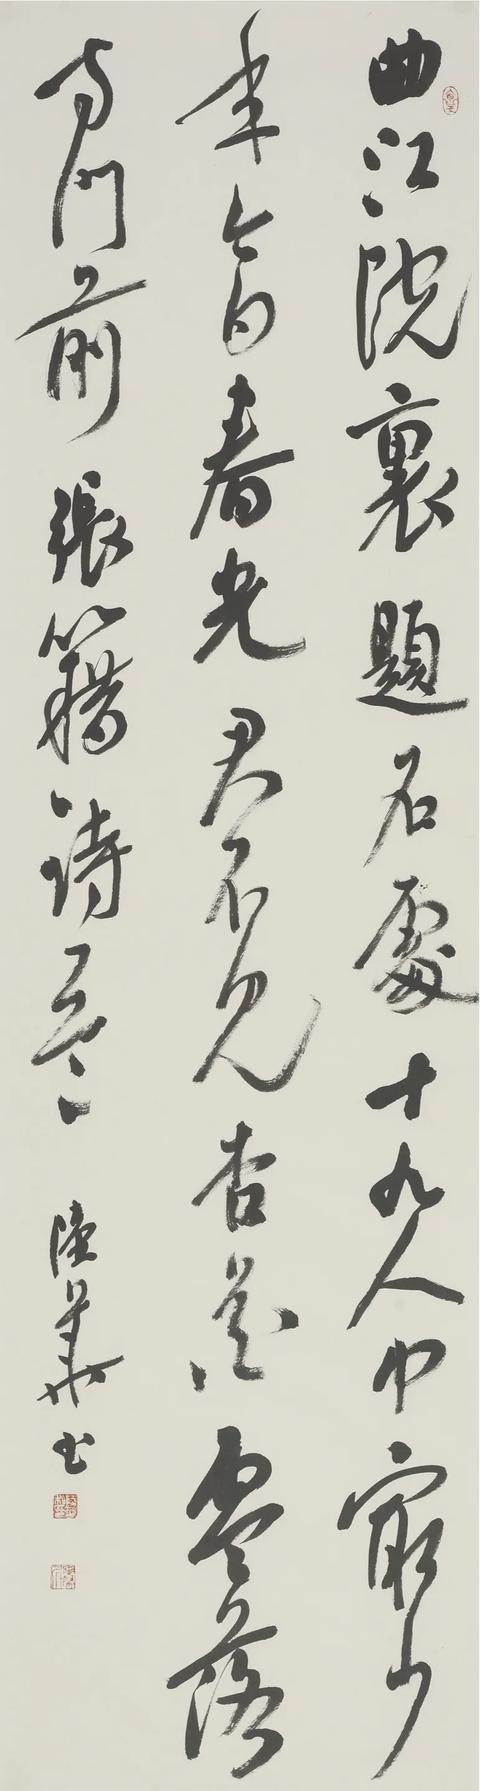 曲江院裏題名處十九人中最少
年今日春光君不見杏花零落
寺門前 張籍詩 華书